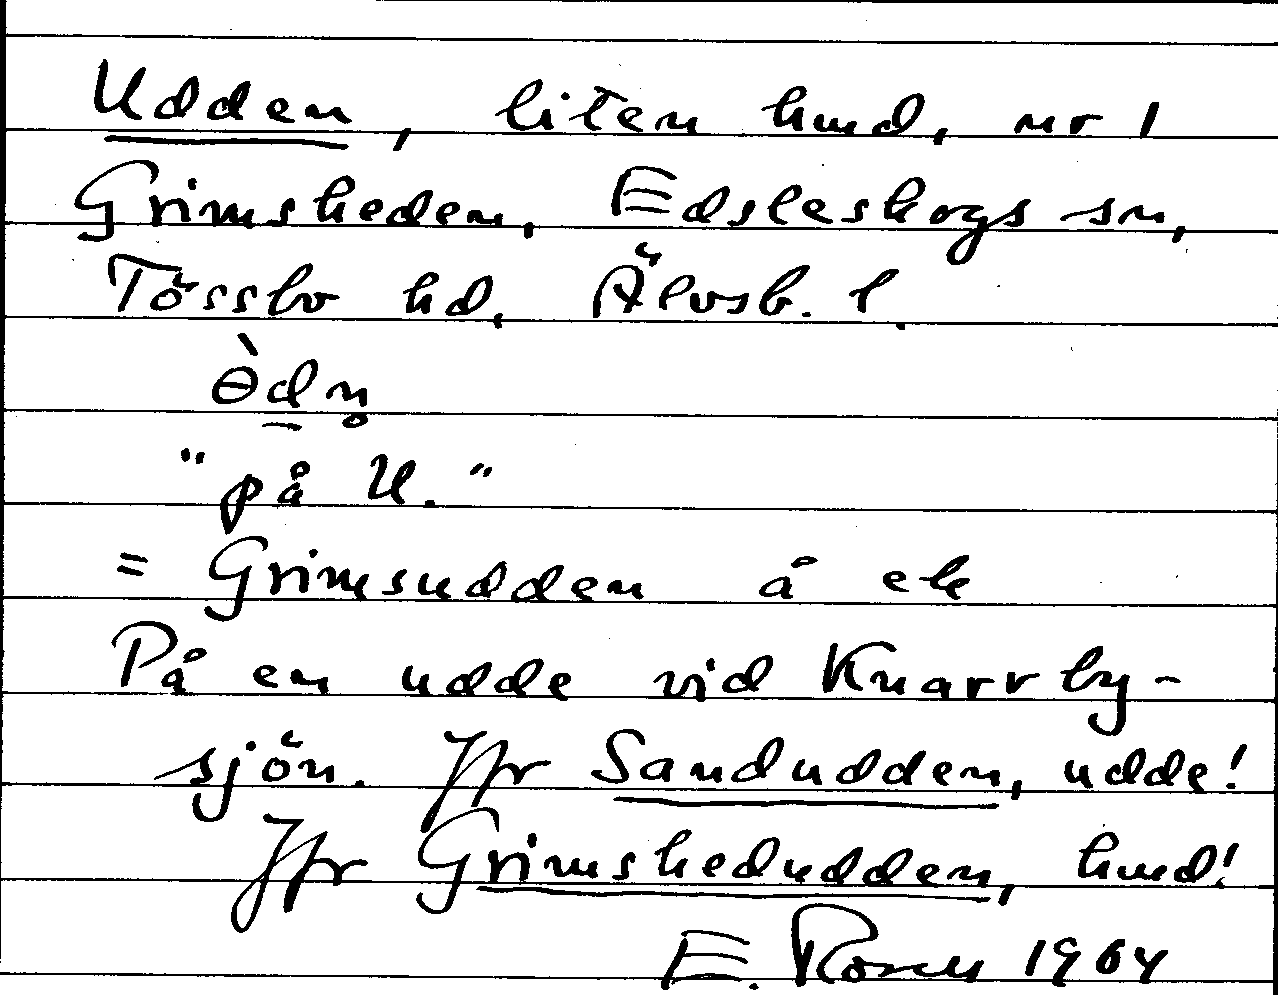 Udden, liten hmd, nr 1
Grimsheden, Edsleskogs sn,
Tössbo hd, Älvsb. l.
ɵ̀d̲n̥
"på U."
= Grimsudden å ek
På en udde vid Knarrby-
sjön. Jfr Sandudden, udde!
Jfr Grimshedudden, hmd!
E. Rosell 1964